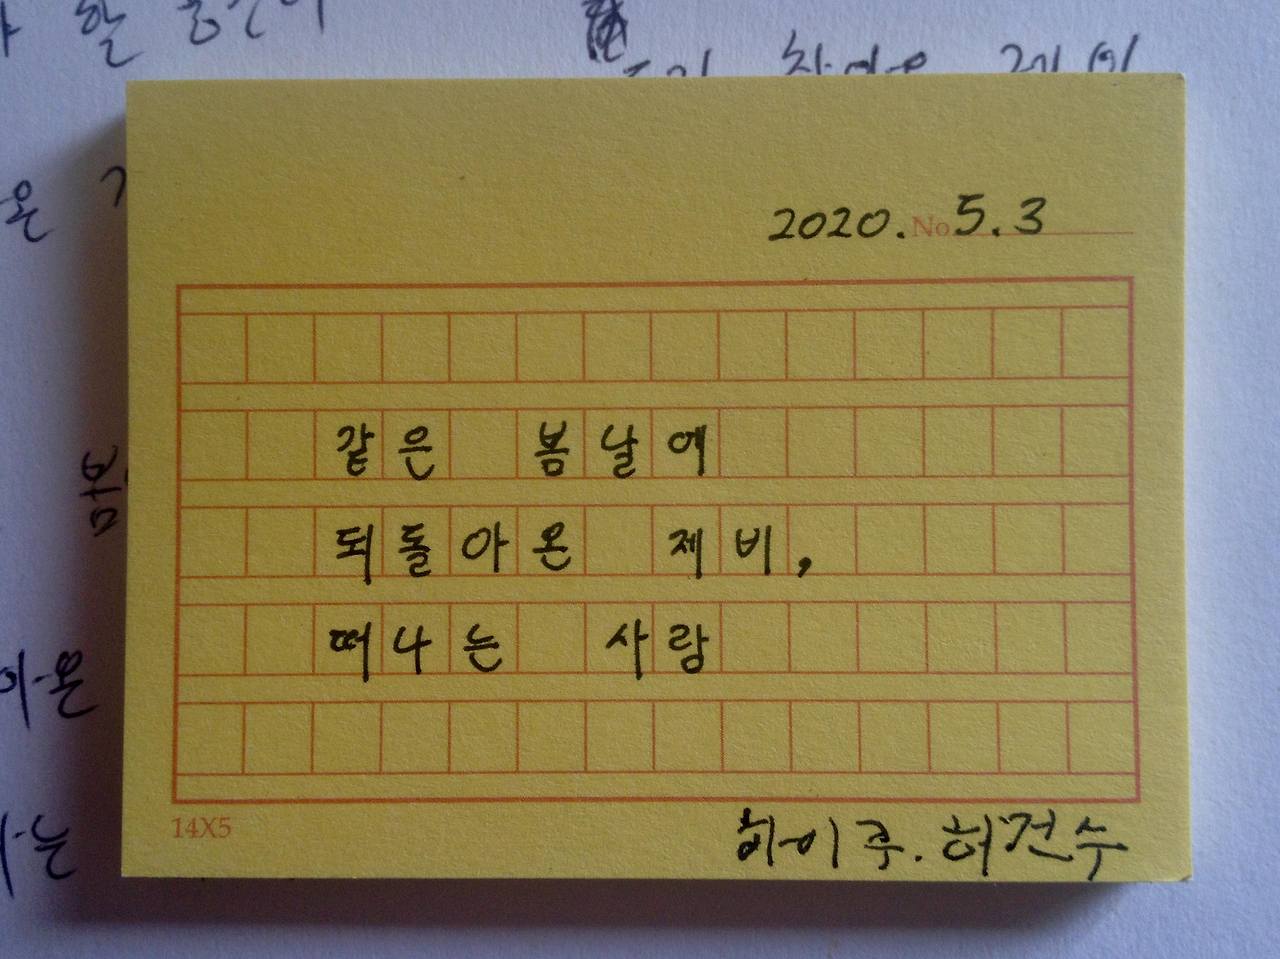 할
2020. No. 5.3
같은 봄날에
되돌아온 제비,
떠나는 사람
14X5
하이쿠. 허건수